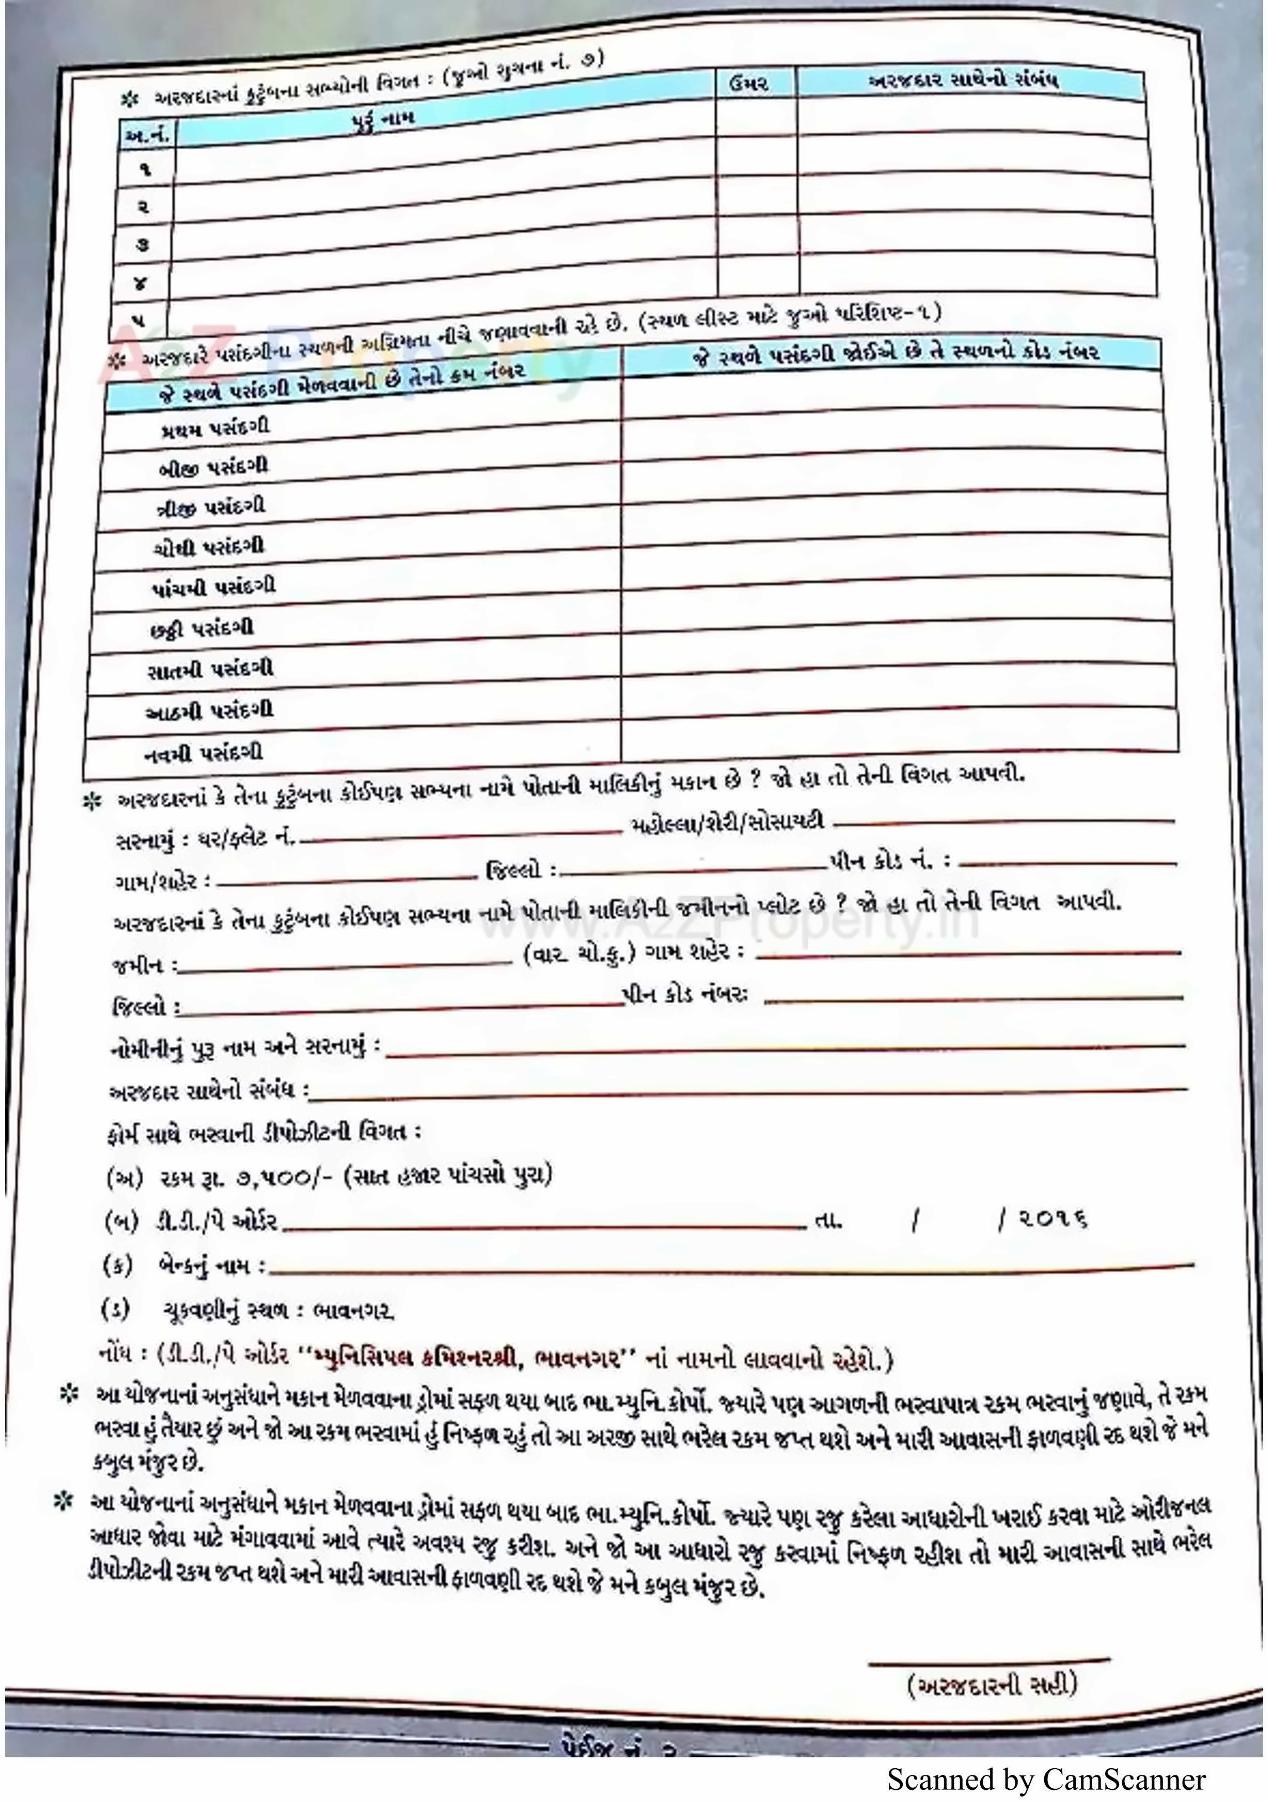 * અરજદારનાં કુટુંબના સભ્યોની વિગત : (જુઓ સુચના નં. ૭)
અ.નં. પુરૂં નામ ઉંમર અરજદાર સાથેનો સંબંધ
૧
૨
૩
૪
૫
* અરજદારે પસંદગીના સ્થળની અગ્રિમતા નીચે જણાવવાની રહે છે. (સ્થળ લીસ્ટ માટે જુઓ પરિશિષ્ટ-૧)
A2Z Property
જે સ્થળે પસંદગી મેળવવાની છે તેનો ક્રમ નંબર જે સ્થળે પસંદગી જોઈએ છે તે સ્થળનો કોડ નંબર
પ્રથમ પસંદગી
બીજી પસંદગી
ત્રીજી પસંદગી
ચોથી પસંદગી
પાંચમી પસંદગી
છઠ્ઠી પસંદગી
સાતમી પસંદગી
આઠમી પસંદગી
નવમી પસંદગી
* અરજદારનાં કે તેના કુટુંબના કોઈપણ સભ્યના નામે પોતાની માલિકીનું મકાન છે ? જો હા તો તેની વિગત આપવી.
સરનામું : ઘર/ફ્લેટ નં. મહોલ્લા/શેરી/સોસાયટી
ગામ/શહેર : જિલ્લો : પીન કોડ નં. :
અરજદારનાં કે તેના કુટુંબના કોઈપણ સભ્યના નામે પોતાની માલિકીની જમીનનો પ્લોટ છે ? જો હા તો તેની વિગત આપવી.
www.A2ZProperty.in
જમીન : (વાર ચો.ફુ.) ગામ શહેર :
જિલ્લો : પીન કોડ નંબરઃ
નોમીનીનું પુરૂ નામ અને સરનામું :
અરજદાર સાથેનો સંબંધ :
ફોર્મ સાથે ભરવાની ડીપોઝીટની વિગત :
(અ) રકમ રૂા. ૭,૫૦૦/- (સાત હજાર પાંચસો પુરા)
(બ) ડી.ડી./પે ઓર્ડર તા. / / ૨૦૧૬
(ક) બેન્કનું નામ :
(ડ) ચૂકવણીનું સ્થળ : ભાવનગર
નોંધ : (ડી.ડી./પે ઓર્ડર "મ્યુનિસિપલ કમિશ્નરશ્રી, ભાવનગર" નાં નામનો લાવવાનો રહેશે.)
* આ યોજનાનાં અનુસંધાને મકાન મેળવવાના ડ્રોમાં સફળ થયા બાદ ભા.મ્યુનિ.કોર્પો. જ્યારે પણ આગળની ભરવાપાત્ર રકમ ભરવાનું જણાવે, તે રકમ
ભરવા હું તૈયાર છું અને જો આ રકમ ભરવામાં હું નિષ્ફળ રહું તો આ અરજી સાથે ભરેલ રકમ જપ્ત થશે અને મારી આવાસની ફાળવણી રદ થશે જે મને
કબુલ મંજુર છે.
* આ યોજનાનાં અનુસંધાને મકાન મેળવવાના ડ્રોમાં સફળ થયા બાદ ભા.મ્યુનિ.કોર્પો. જ્યારે પણ રજુ કરેલા આધારોની ખરાઈ કરવા માટે ઓરીજનલ
આધાર જોવા માટે મંગાવવામાં આવે ત્યારે અવશ્ય રજુ કરીશ. અને જો આ આધારો રજુ કરવામાં નિષ્ફળ રહીશ તો મારી આવાસની સાથે ભરેલ
ડીપોઝીટની રકમ જપ્ત થશે અને મારી આવાસની ફાળવણી રદ થશે જે મને કબુલ મંજુર છે.
(અરજદારની સહી)
પેઈજ નં. ૨
Scanned by CamScanner